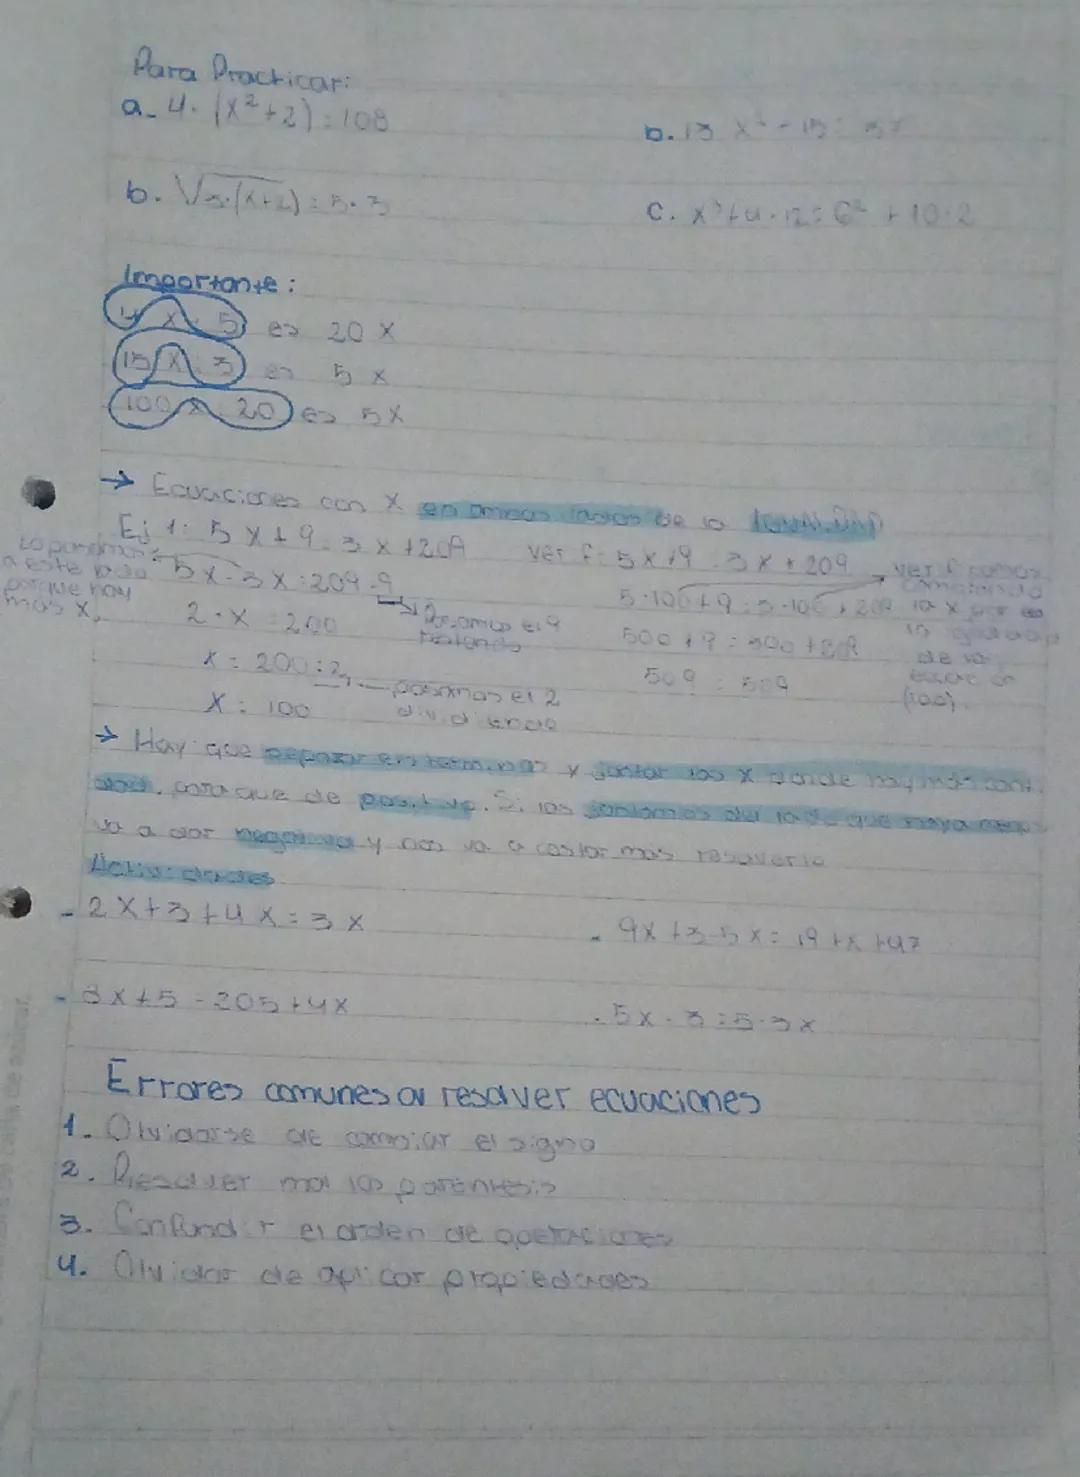 Para Practicar:
a_ 4. (x²+2)=108
b. 13 x² - 15 = 37
b. √3.(x+2) = 5.3
C. x³+4.12=6² + 10.2
Importante:
4 x . 5 es 20 x
15 x : 3 es 5 x
100 x : 20 es 5x
→ Ecuaciones con x en ambos lados de la IGUALDAD
Ej 1: 5 x + 9 = 3 x + 209
Lo ponemos a este lado porque hay más x.
5x - 3x = 209 - 9
Pasamos el 9 restando
2 . x = 200
x = 200 : 2
pasamos el 2 dividiendo
x = 100
verif: 5 x + 9 = 3 x + 209
5.100+9 = 3.100 + 209
500 + 9 = 300 + 209
509 = 509
verificamos cambiando la x por
de la ecuación (100).
→ Hay que separar en terminos y juntar las x donde hay más cant.
para que de positivo. Si las juntamos del lado que haya menos
va a dar negativo y nos va a costar más resolverlo
Actividades
- 2x+3+4x=3x
- 9x+3-5x=19+x+47
- 8x+5=205+4x
- 5x-3=5-3x
Errores comunes al resolver ecuaciones
1. Olvidarse de cambiar el signo
2. Resolver mal los paréntesis
3. Confundir el orden de operaciones
4. Olvidar de aplicar propiedades